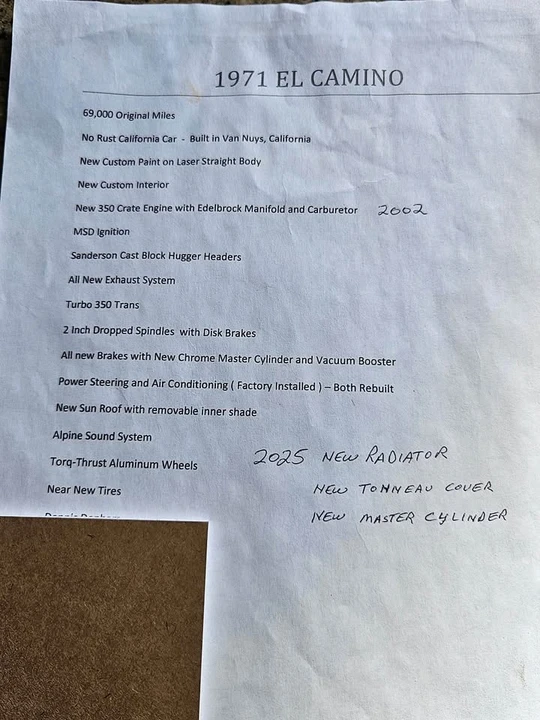 1971 EL CAMINO
69,000 Original Miles
No Rust California Car - Built in Van Nuys, California
New Custom Paint on Laser Straight Body
New Custom Interior
New 350 Crate Engine with Edelbrock Manifold and Carburetor 2002
MSD Ignition
Sanderson Cast Block Hugger Headers
All New Exhaust System
Turbo 350 Trans
2 Inch Dropped Spindles with Disk Brakes
All new Brakes with New Chrome Master Cylinder and Vacuum Booster
Power Steering and Air Conditioning ( Factory Installed ) – Both Rebuilt
New Sun Roof with removable inner shade
Alpine Sound System
Torq-Thrust Aluminum Wheels
Near New Tires
2025 NEW RADIATOR
NEW TONNEAU COVER
NEW MASTER CYLINDER